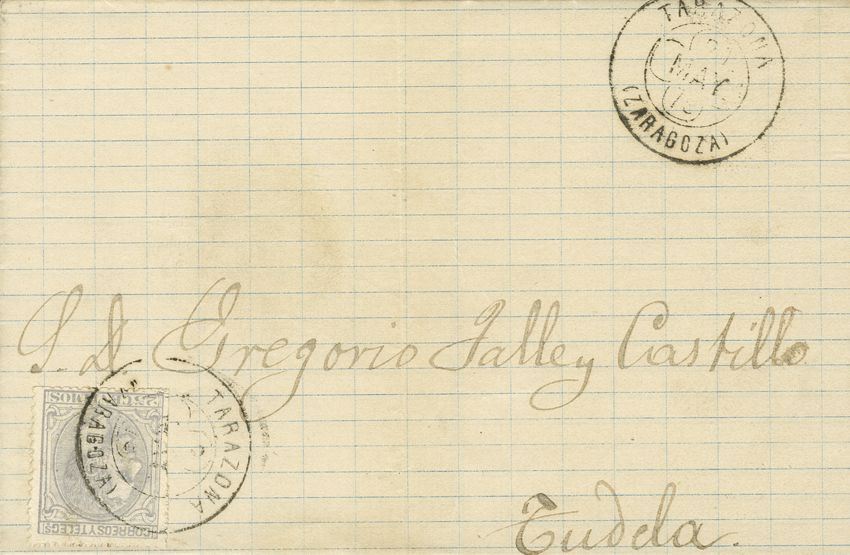 TARAZONA
MAY
(ZARAGOZA)
S. D. Gregorio Salley Castillo
25 C. DE PESO
CORREOS Y TELEGS
TARAZONA
(ZARAGOZA)
Tudela.